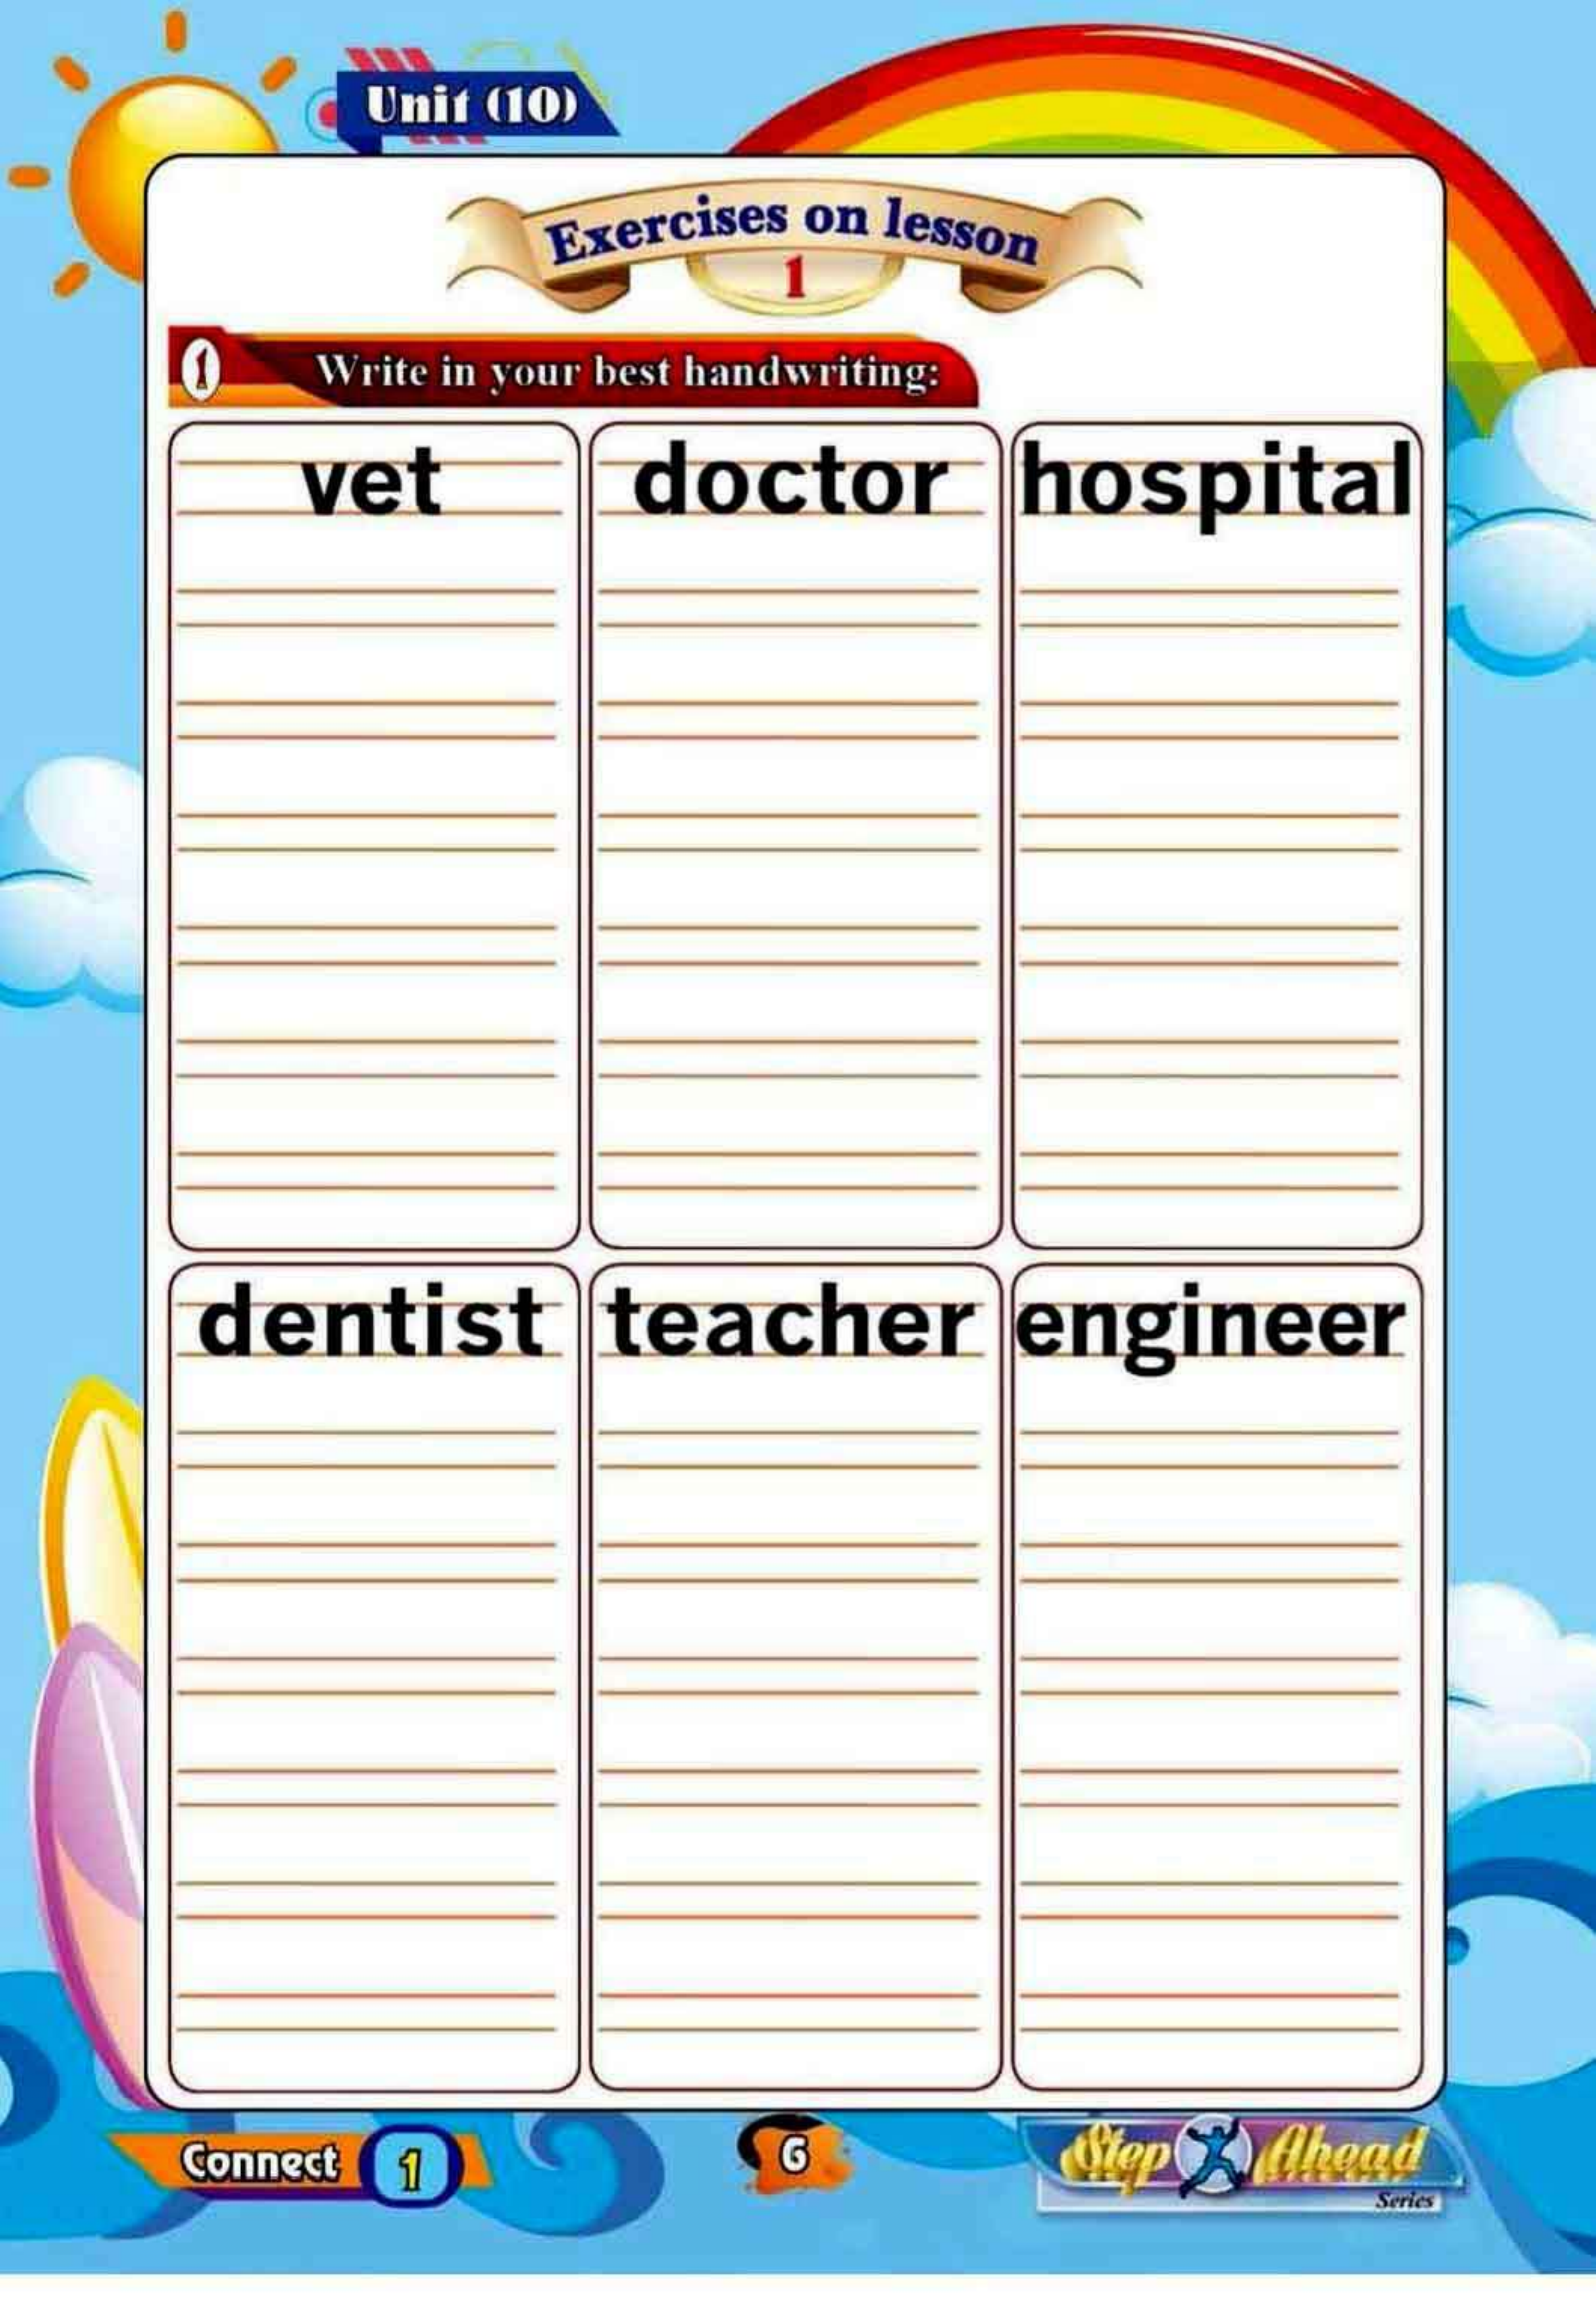 Unit (10)
Exercises on lesson
1
1 Write in your best handwriting:
vet doctor hospital
dentist teacher engineer
Connect 1
6
Step Ahead
Series